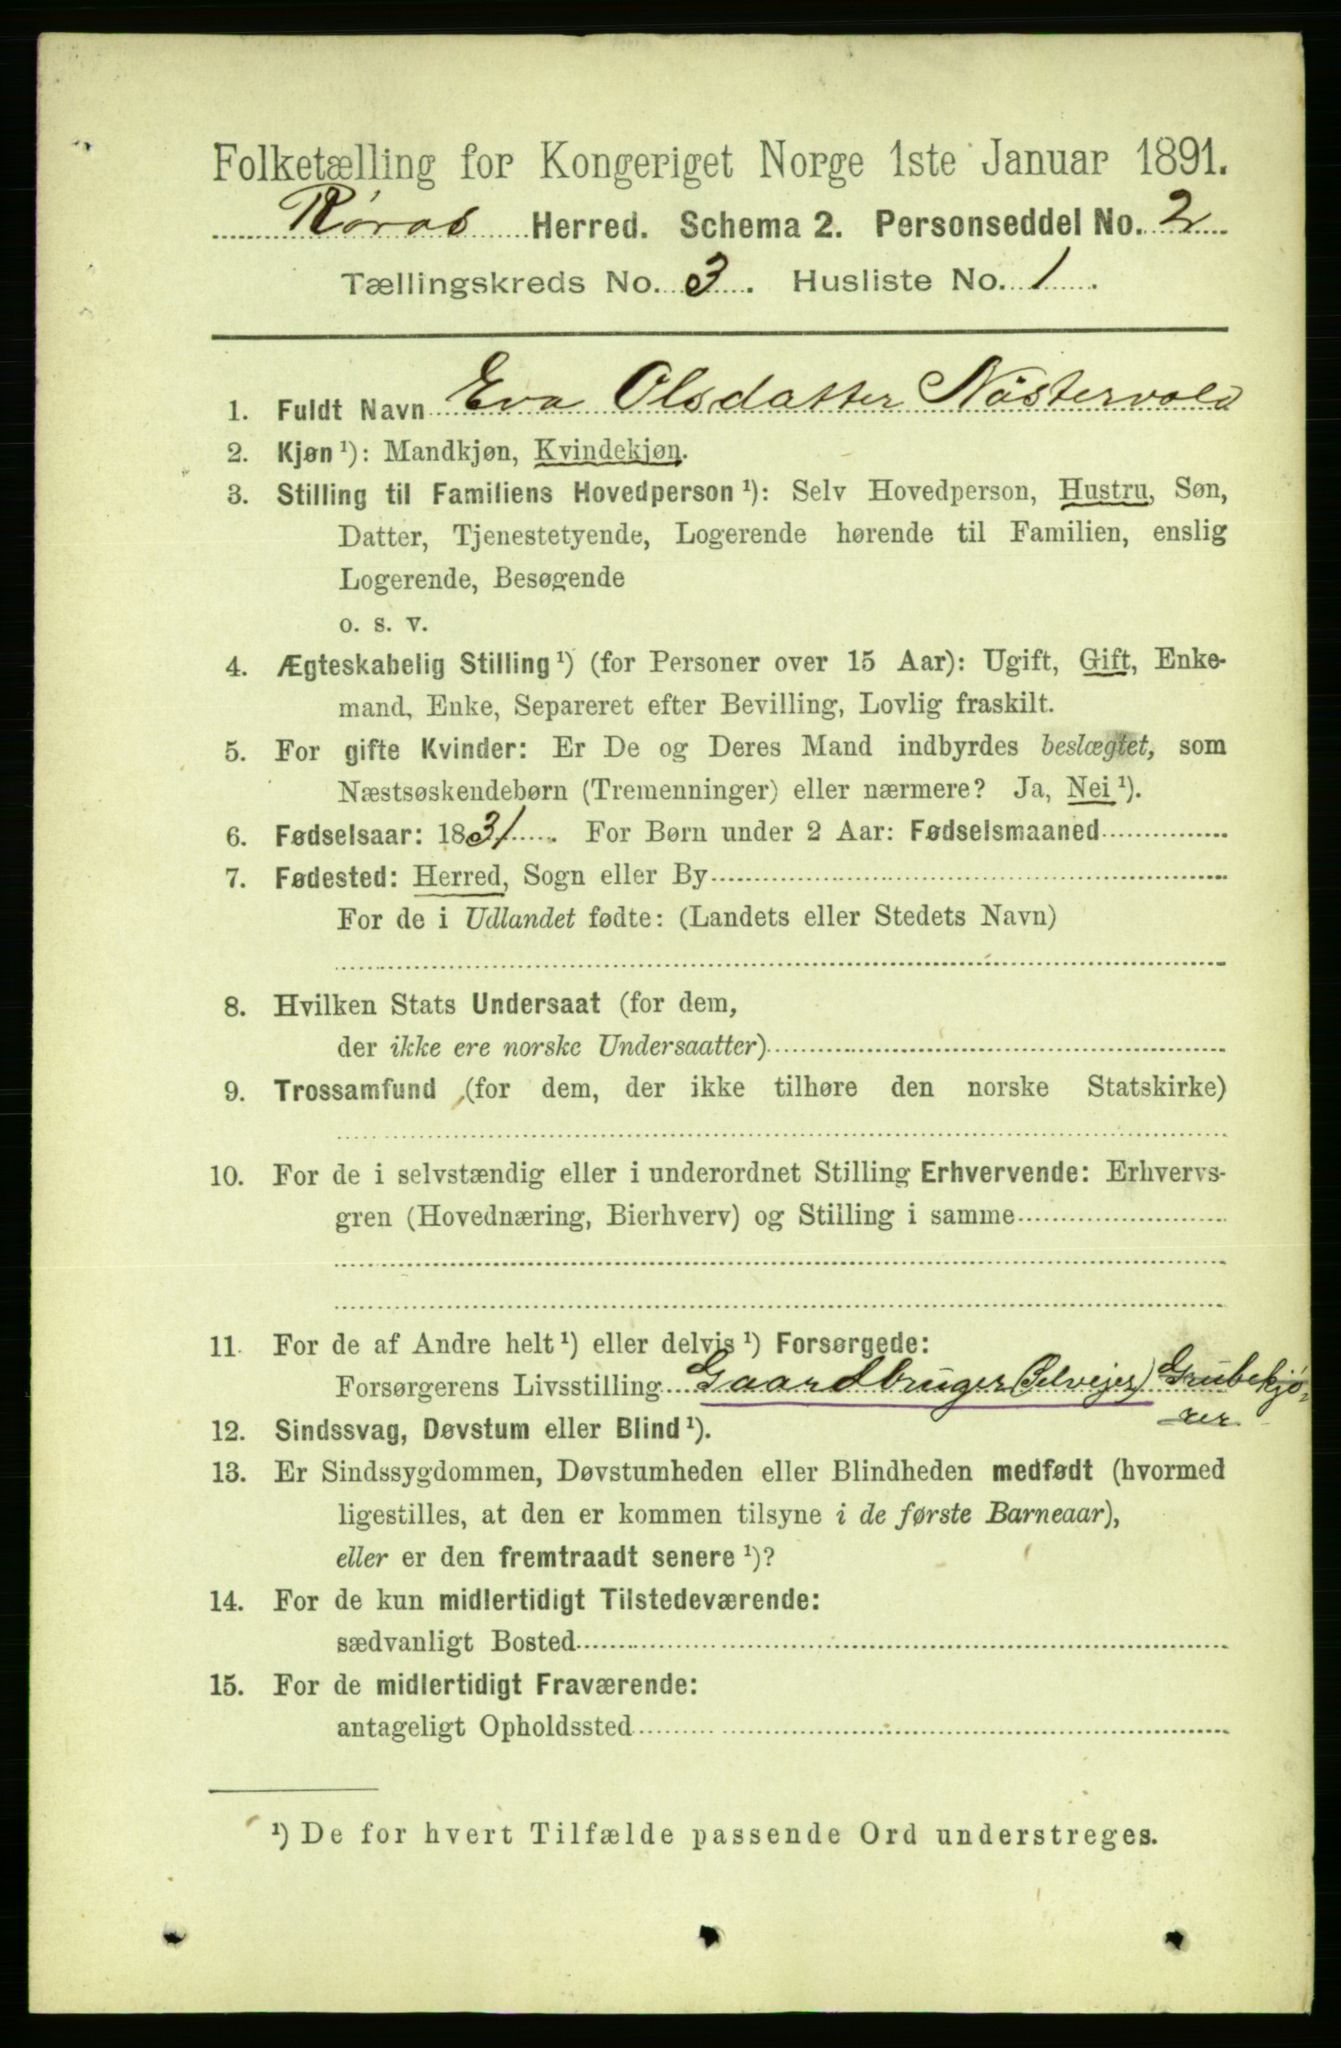 Folketælling for Kongeriget Norge 1ste Januar 1891.
Røros Herred. Schema 2. Personseddel No. 2
Tællingskreds No. 3. Husliste No. 1.
1. Fuldt Navn Eva Olsdatter Nöstervold
2. Kjøn ¹): Mandkjøn, Kvindekjøn.
3. Stilling til Familiens Hovedperson ¹): Selv Hovedperson, Hustru, Søn,
Datter, Tjenestetyende, Logerende hørende til Familien, enslig
Logerende, Besøgende
o. s. v.
4. Ægteskabelig Stilling ¹) (for Personer over 15 Aar): Ugift, Gift, Enke-
mand, Enke, Separeret efter Bevilling, Lovlig fraskilt.
5. For gifte Kvinder: Er De og Deres Mand indbyrdes beslægtet, som
Næstsøskendebørn (Tremenninger) eller nærmere? Ja, Nei ¹).
6. Fødselsaar: 1831. For Børn under 2 Aar: Fødselsmaaned
7. Fødested: Herred, Sogn eller By
For de i Udlandet fødte: (Landets eller Stedets Navn)
8. Hvilken Stats Undersaat (for dem,
der ikke ere norske Undersaatter)
9. Trossamfund (for dem, der ikke tilhøre den norske Statskirke)
10. For de i selvstændig eller i underordnet Stilling Erhvervende: Erhvervs-
gren (Hovednæring, Bierhverv) og Stilling i samme
11. For de af Andre helt ¹) eller delvis ¹) Forsørgede:
Forsørgerens Livsstilling Gaardbruger (Selvejer) Grubekjö-
rer
12. Sindssvag, Døvstum eller Blind ¹).
13. Er Sindssygdommen, Døvstumheden eller Blindheden medfødt (hvormed
ligestilles, at den er kommen tilsyne i de første Barneaar),
eller er den fremtraadt senere ¹)?
14. For de kun midlertidigt Tilstedeværende:
sædvanligt Bosted
15. For de midlertidigt Fraværende:
antageligt Opholdssted
¹) De for hvert Tilfælde passende Ord understreges.